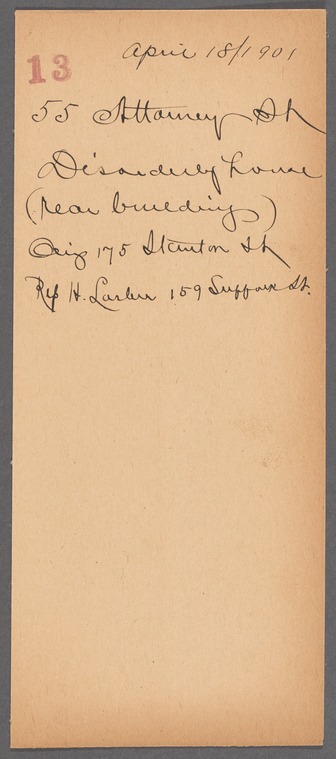 April 18/1901
13
55 Attorney St
Disorderly house
(rear building)
Cig 175 Stanton St
Ref H. Larber 159 Suffolk St.